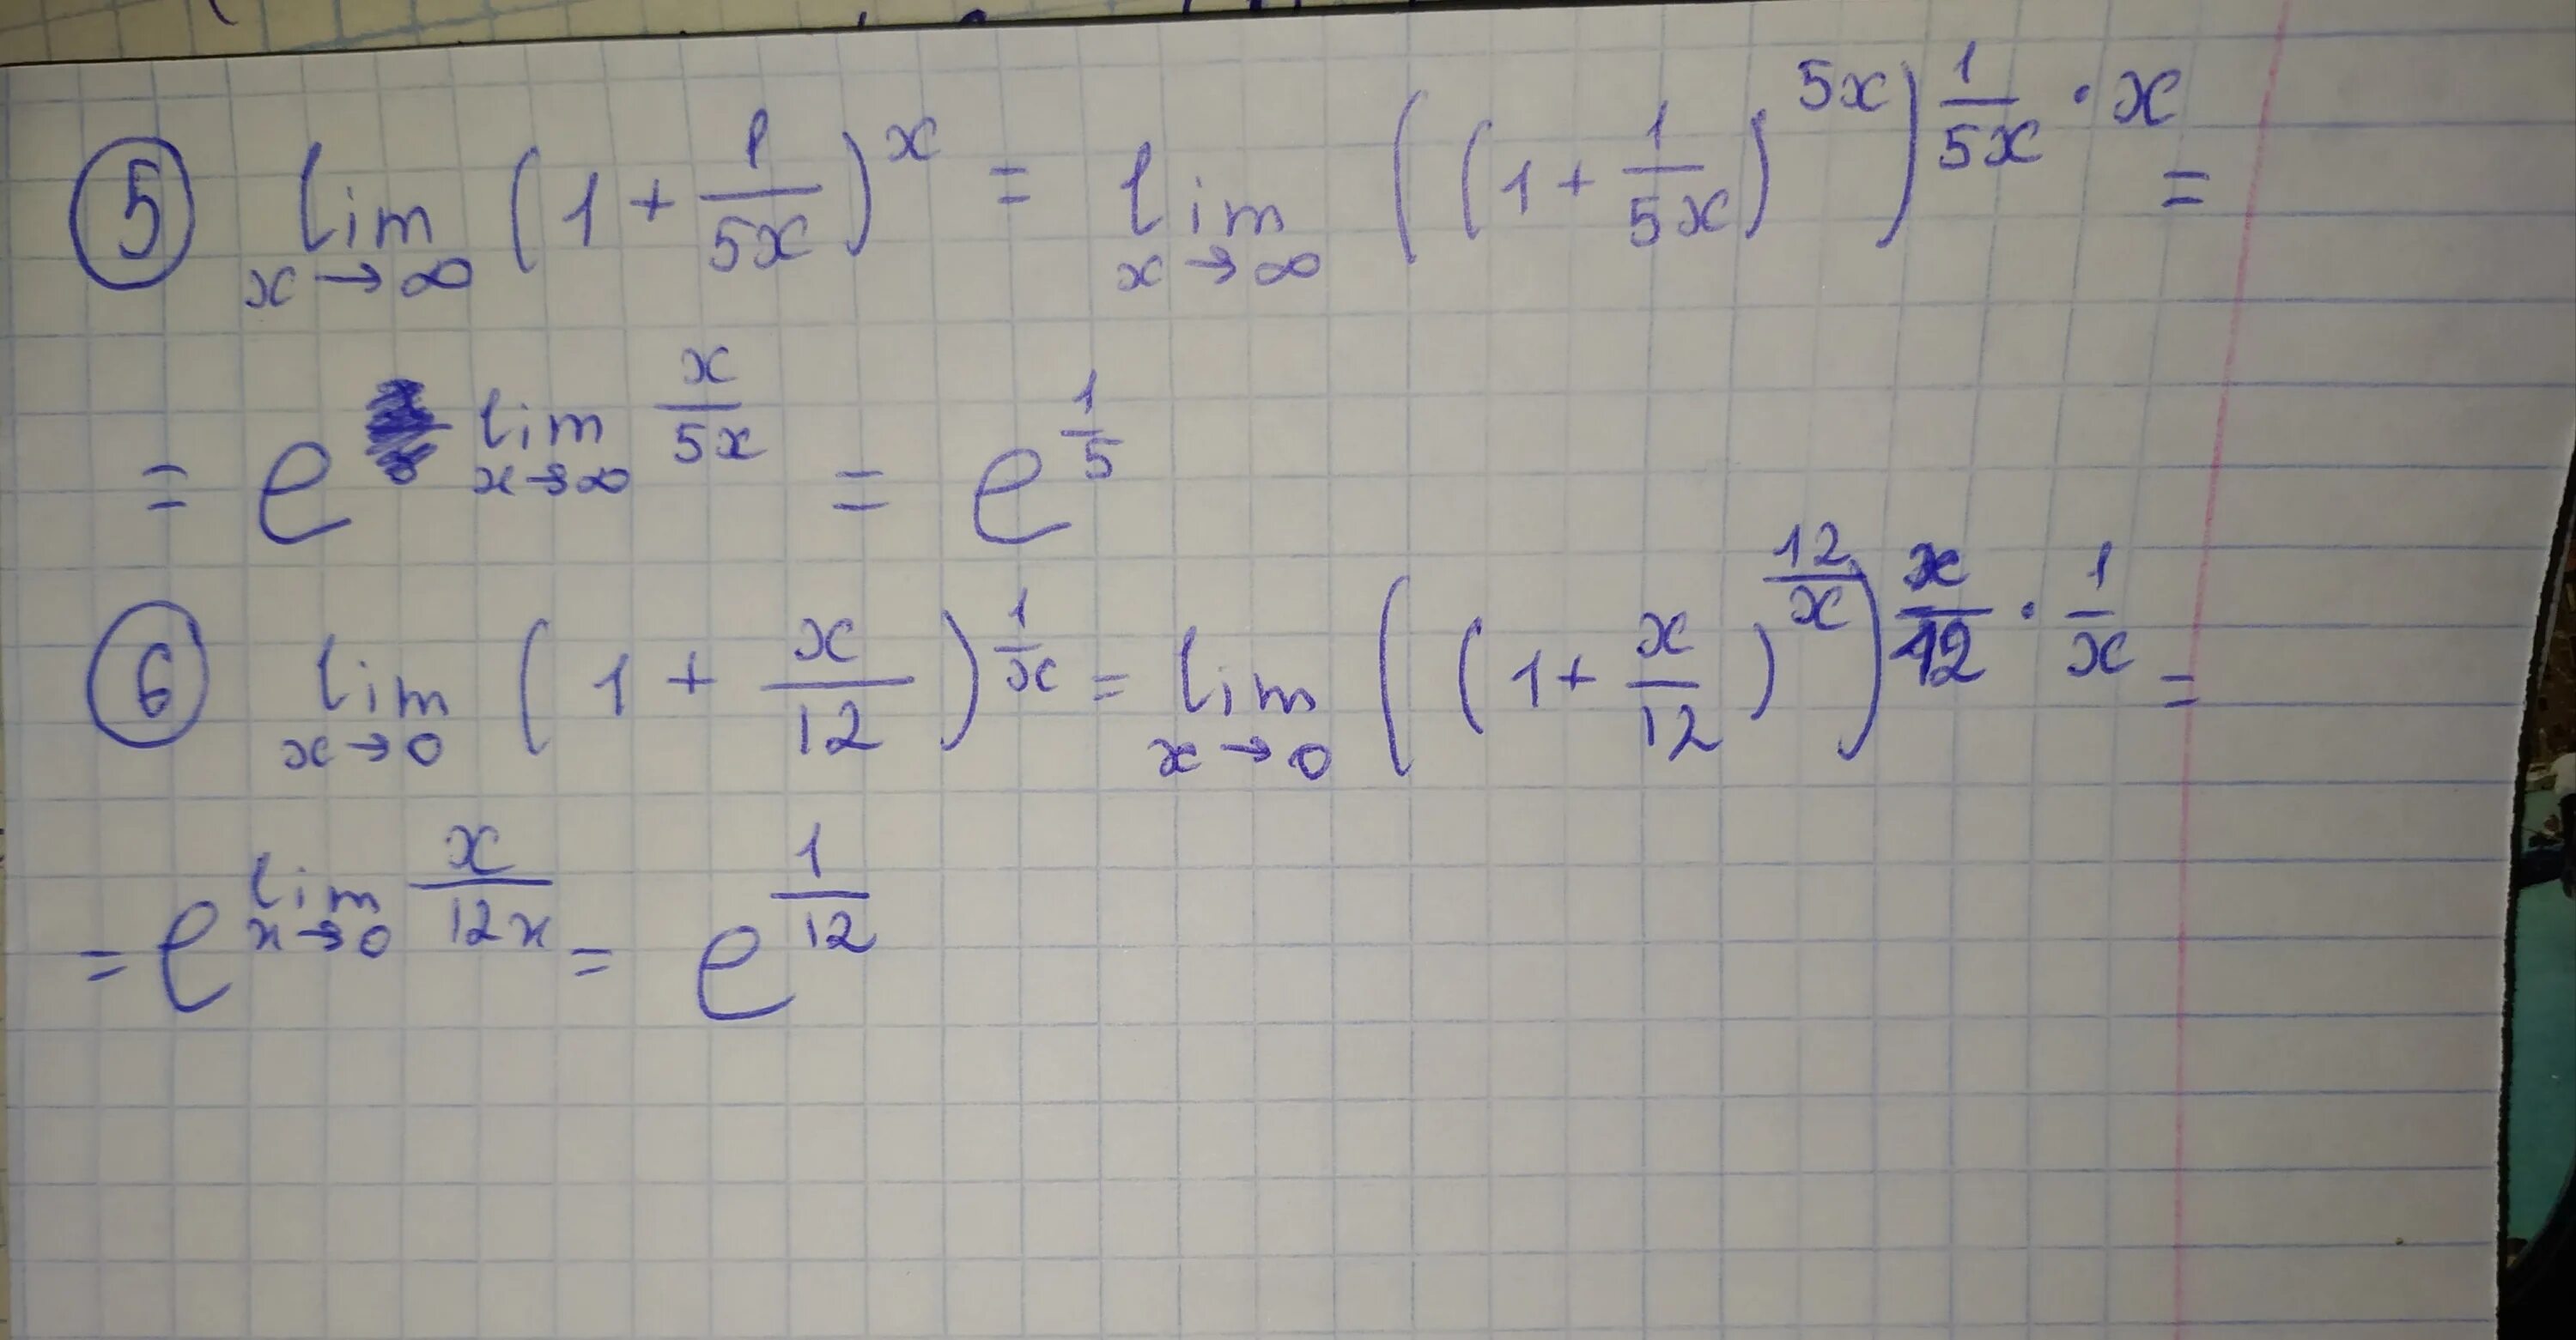 ⑤ lim x→∞ (1 + 1/5x)^x = lim x→∞ ((1 + 1/5x)^5x)^(1/5x · x) =
= e^(lim x→∞ x/5x) = e^(1/5)
⑥ lim x→0 (1 + x/12)^(1/x) = lim x→0 ((1 + x/12)^(12/x))^(x/12 · 1/x) =
= e^(lim x→0 x/12x) = e^(1/12)